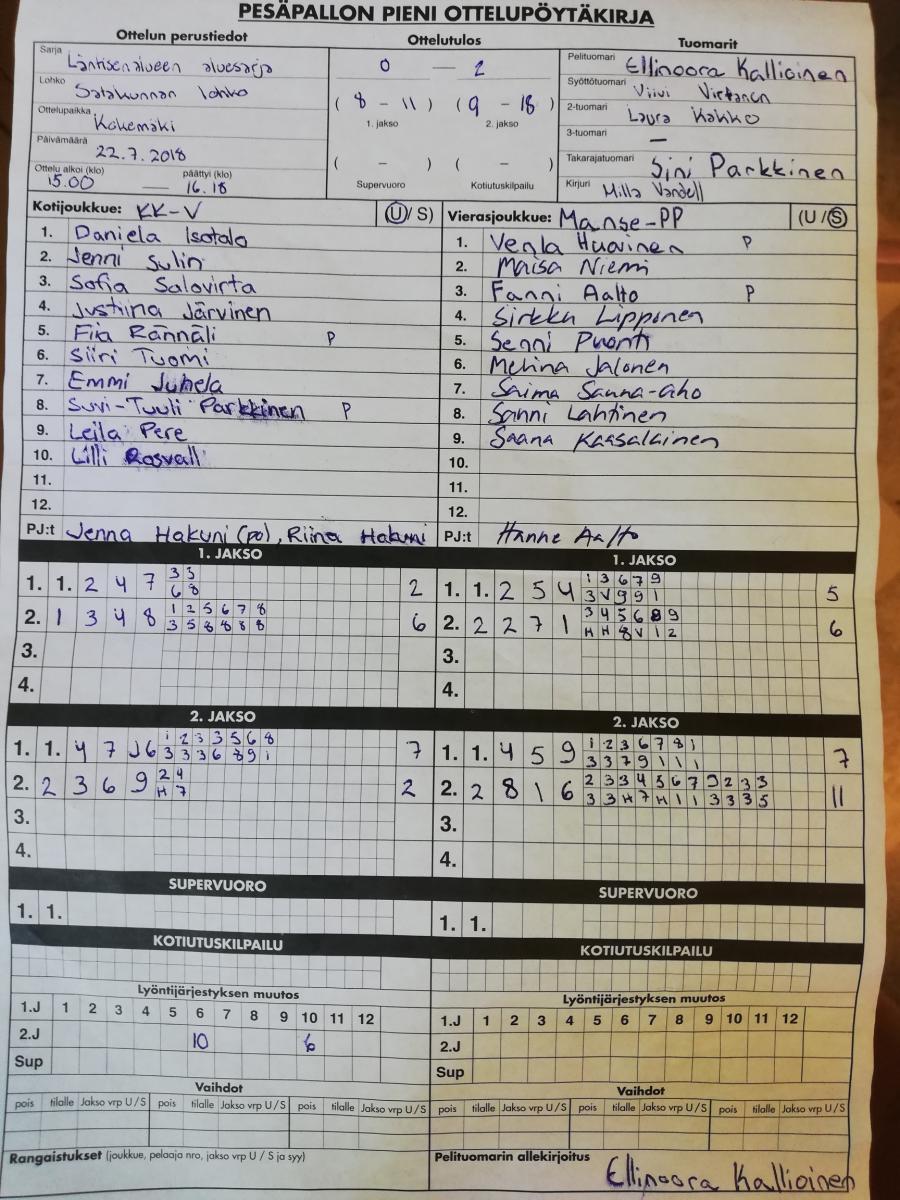 PESÄPALLON PIENI OTTELUPÖYTÄKIRJA
Ottelun perustiedot
Sarja Läntisen alueen aluesarja
Lohko Satakunnan lohko
Ottelupaikka Kokemäki
Päivämäärä 22.7.2018
Ottelu alkoi (klo) päättyi (klo)
15.00 — 16.18
Ottelutulos
0 — 2
( 8 - 11 ) ( 9 - 18 )
1. jakso 2. jakso
( - ) ( - )
Supervuoro Kotiutuskilpailu
Tuomarit
Pelituomari Ellinoora Kallioinen
Syöttötuomari Viivi Virtanen
2-tuomari Laura Kakko
3-tuomari —
Takarajatuomari Sini Parkkinen
Kirjuri Milla Vandell
Kotijoukkue: KK-V (U/ S)
1. Daniela Isotalo
2. Jenni Sulin
3. Sofia Salovirta
4. Justiina Järvinen
5. Fiia Rännäli P
6. Siiri Tuomi
7. Emmi Juhela
8. Suvi-Tuuli Parkkinen P
9. Leila Pere
10. Lilli Rosvall
11.
12.
PJ:t Jenna Hakuni (po), Riina Hakuni
Vierasjoukkue: Manse-PP (U /S)
1. Venla Huovinen P
2. Maisa Niemi
3. Fanni Aalto P
4. Sirkku Lipponen
5. Senni Puonti
6. Melina Jalonen
7. Saima Sanna-aho
8. Sanni Lahtinen
9. Saana Kaasalainen
10.
11.
12.
PJ:t Hanne Aalto
1. JAKSO
1. 1. 2 4 7 3 3 2
6 8
2. 1 3 4 8 1 2 5 6 7 8 6
3 5 8 8 8 8
3.
4.
1. JAKSO
1. 1. 2 5 4 1 3 6 7 9 5
3 V 9 9 1
2. 2 2 7 1 3 4 5 6 8 9 6
H H 8 V 1 2
3.
4.
2. JAKSO
1. 1. 4 7 J6 1 2 3 3 5 6 8 7
3 3 3 6 8 9 1
2. 2 3 6 9 2 4 2
H 7
3.
4.
2. JAKSO
1. 1. 4 5 9 1 2 3 6 7 8 1 7
3 3 7 9 1 1 1
2. 2 8 1 6 2 3 3 4 5 6 7 9 2 3 3 11
3 3 H 7 H 1 1 3 3 3 5
3.
4.
SUPERVUORO
1. 1.
SUPERVUORO
1. 1.
KOTIUTUSKILPAILU
KOTIUTUSKILPAILU
Lyöntijärjestyksen muutos
1.J 1 2 3 4 5 6 7 8 9 10 11 12
2.J 10 6
Sup
Lyöntijärjestyksen muutos
1.J 1 2 3 4 5 6 7 8 9 10 11 12
2.J
Sup
Vaihdot
pois tilalle Jakso vrp U / S pois tilalle Jakso vrp U / S pois tilalle Jakso vrp U / S
Vaihdot
pois tilalle Jakso vrp U / S pois tilalle Jakso vrp U / S pois tilalle Jakso vrp U / S
Rangaistukset (joukkue, pelaaja nro, jakso vrp U / S ja syy)
Pelituomarin allekirjoitus
Ellinoora Kallioinen